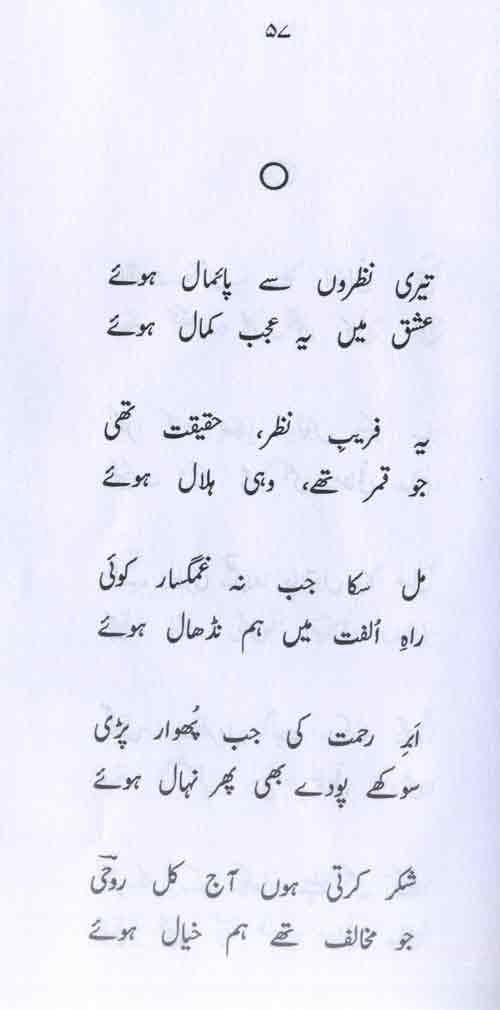 ۵۷
تیری نظروں سے پائمال ہوئے
عشق میں یہ عجب کمال ہوئے
یہ فریبِ نظر، حقیقت تھی
جو قمر تھے، وہی ہلال ہوئے
مل سکا جب نہ غمگسار کوئی
راہِ اُلفت میں ہم نڈھال ہوئے
اَبرِ رحمت کی جب پُھوار پڑی
سوکھے پودے بھی پھر نہال ہوئے
شکر کرتی ہوں آج کل روحیؔ
جو مخالف تھے ہم خیال ہوئے